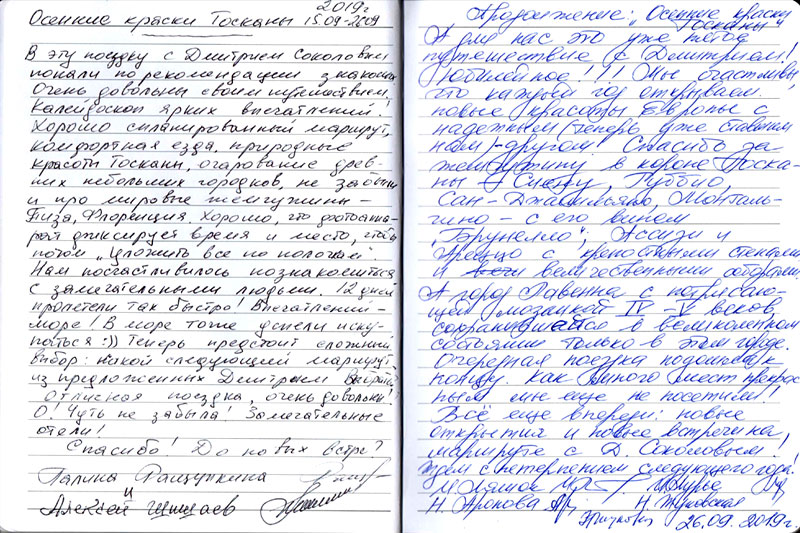 2019г.
Осенние краски Тосканы 15.09-26.09
В эту поездку с Дмитрием Соколовым
попали по рекомендации знакомых.
Очень довольны своим путешествием!
Калейдоскоп ярких впечатлений!
Хорошо спланированный маршрут,
комфортная езда, природные
красоты Тосканы, очарование древ-
них небольших городков, не забыли
и про мировые жемчужины -
Пиза, Флоренция. Хорошо, что фотоаппа-
рат фиксирует время и место, чтобы
потом "уложить все по полочкам".
Нам посчастливилось познакомиться
с замечательными людьми. 12 дней
пролетели так быстро! Впечатлений -
море! В море тоже успели иску-
паться :)) Теперь предстоит сложный
выбор: какой следующий маршрут
из предложенных Дмитрием
Отличная поездка, очень довольны!
О! Чуть не забыла! Замечательные
отели!
Спасибо! До новых встреч!
Галина Ращупкина
и
Алексей
Продолжение: "Осенние краски
Тосканы"
А для нас это уже пятое
путешествие с Дмитрием!
Юбилейное!!! Мы счастливы,
что каждый год открываем
новые красоты Европы с
надежным (теперь уже ставшим
нам)-другом! Спасибо за
жемчужину в короне Тоска-
ны - Сиену, Губбио,
Сан-Джиминьяно, Монталь-
чино - с его вином
"Брунелло", Ассизи и
Ареццо с крепостными стенами
и величественными соборами.
А город Равенна с потрясаю-
щей мозаикой IV-V веков,
сохранившейся в великолепном
состоянии только в этом городе.
Очередная поездка подошла к
концу. Как много мест прекрас-
ных мы еще не посетили!
Всё еще впереди: новые
открытия и новые встречи на
маршруте с Д. Соколовым.
Ждем с нетерпением следующего года!
Н. Жуковская
26.09.2019г.